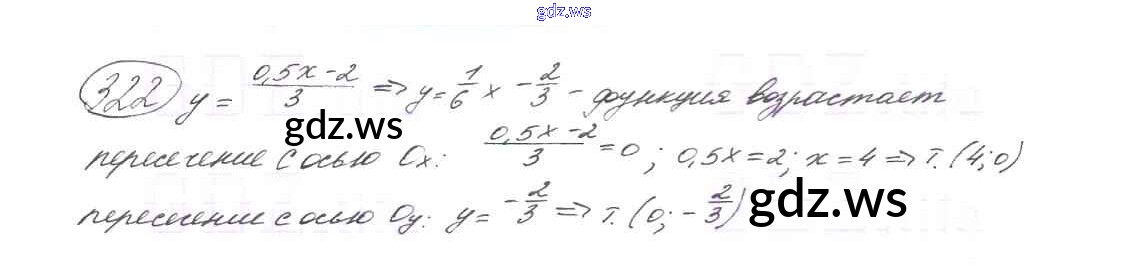 gdz.ws
322 y = (0,5x-2)/3 => y = 1/6 x - 2/3 - функция возрастает
gdz.ws
пересечение с осью Ox: (0,5x-2)/3 = 0; 0,5x = 2; x = 4 => т. (4;0)
пересечение с осью Oy: y = -2/3 => т. (0; -2/3) gdz.ws